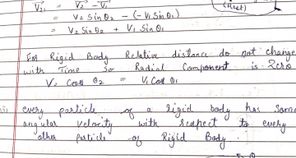 V₂₁ = V₂ - V₁
= V₂ Sin θ₂ - (-V₁ Sin θ₁)
= V₂ Sin θ₂ + V₁ Sin θ₁
For Rigid Body Relative distance do not change
with Time So Radial Component is Zero
V₂ Cos θ₂ = V₁ Cos θ₁
every particle of a rigid body has same
angular velocity with respect to every
other particle of Rigid Body.